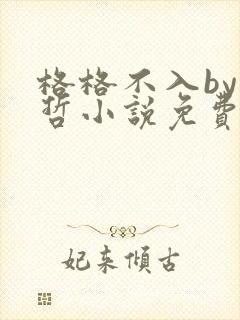 格格不入by
哲小說免費
妃来傾古